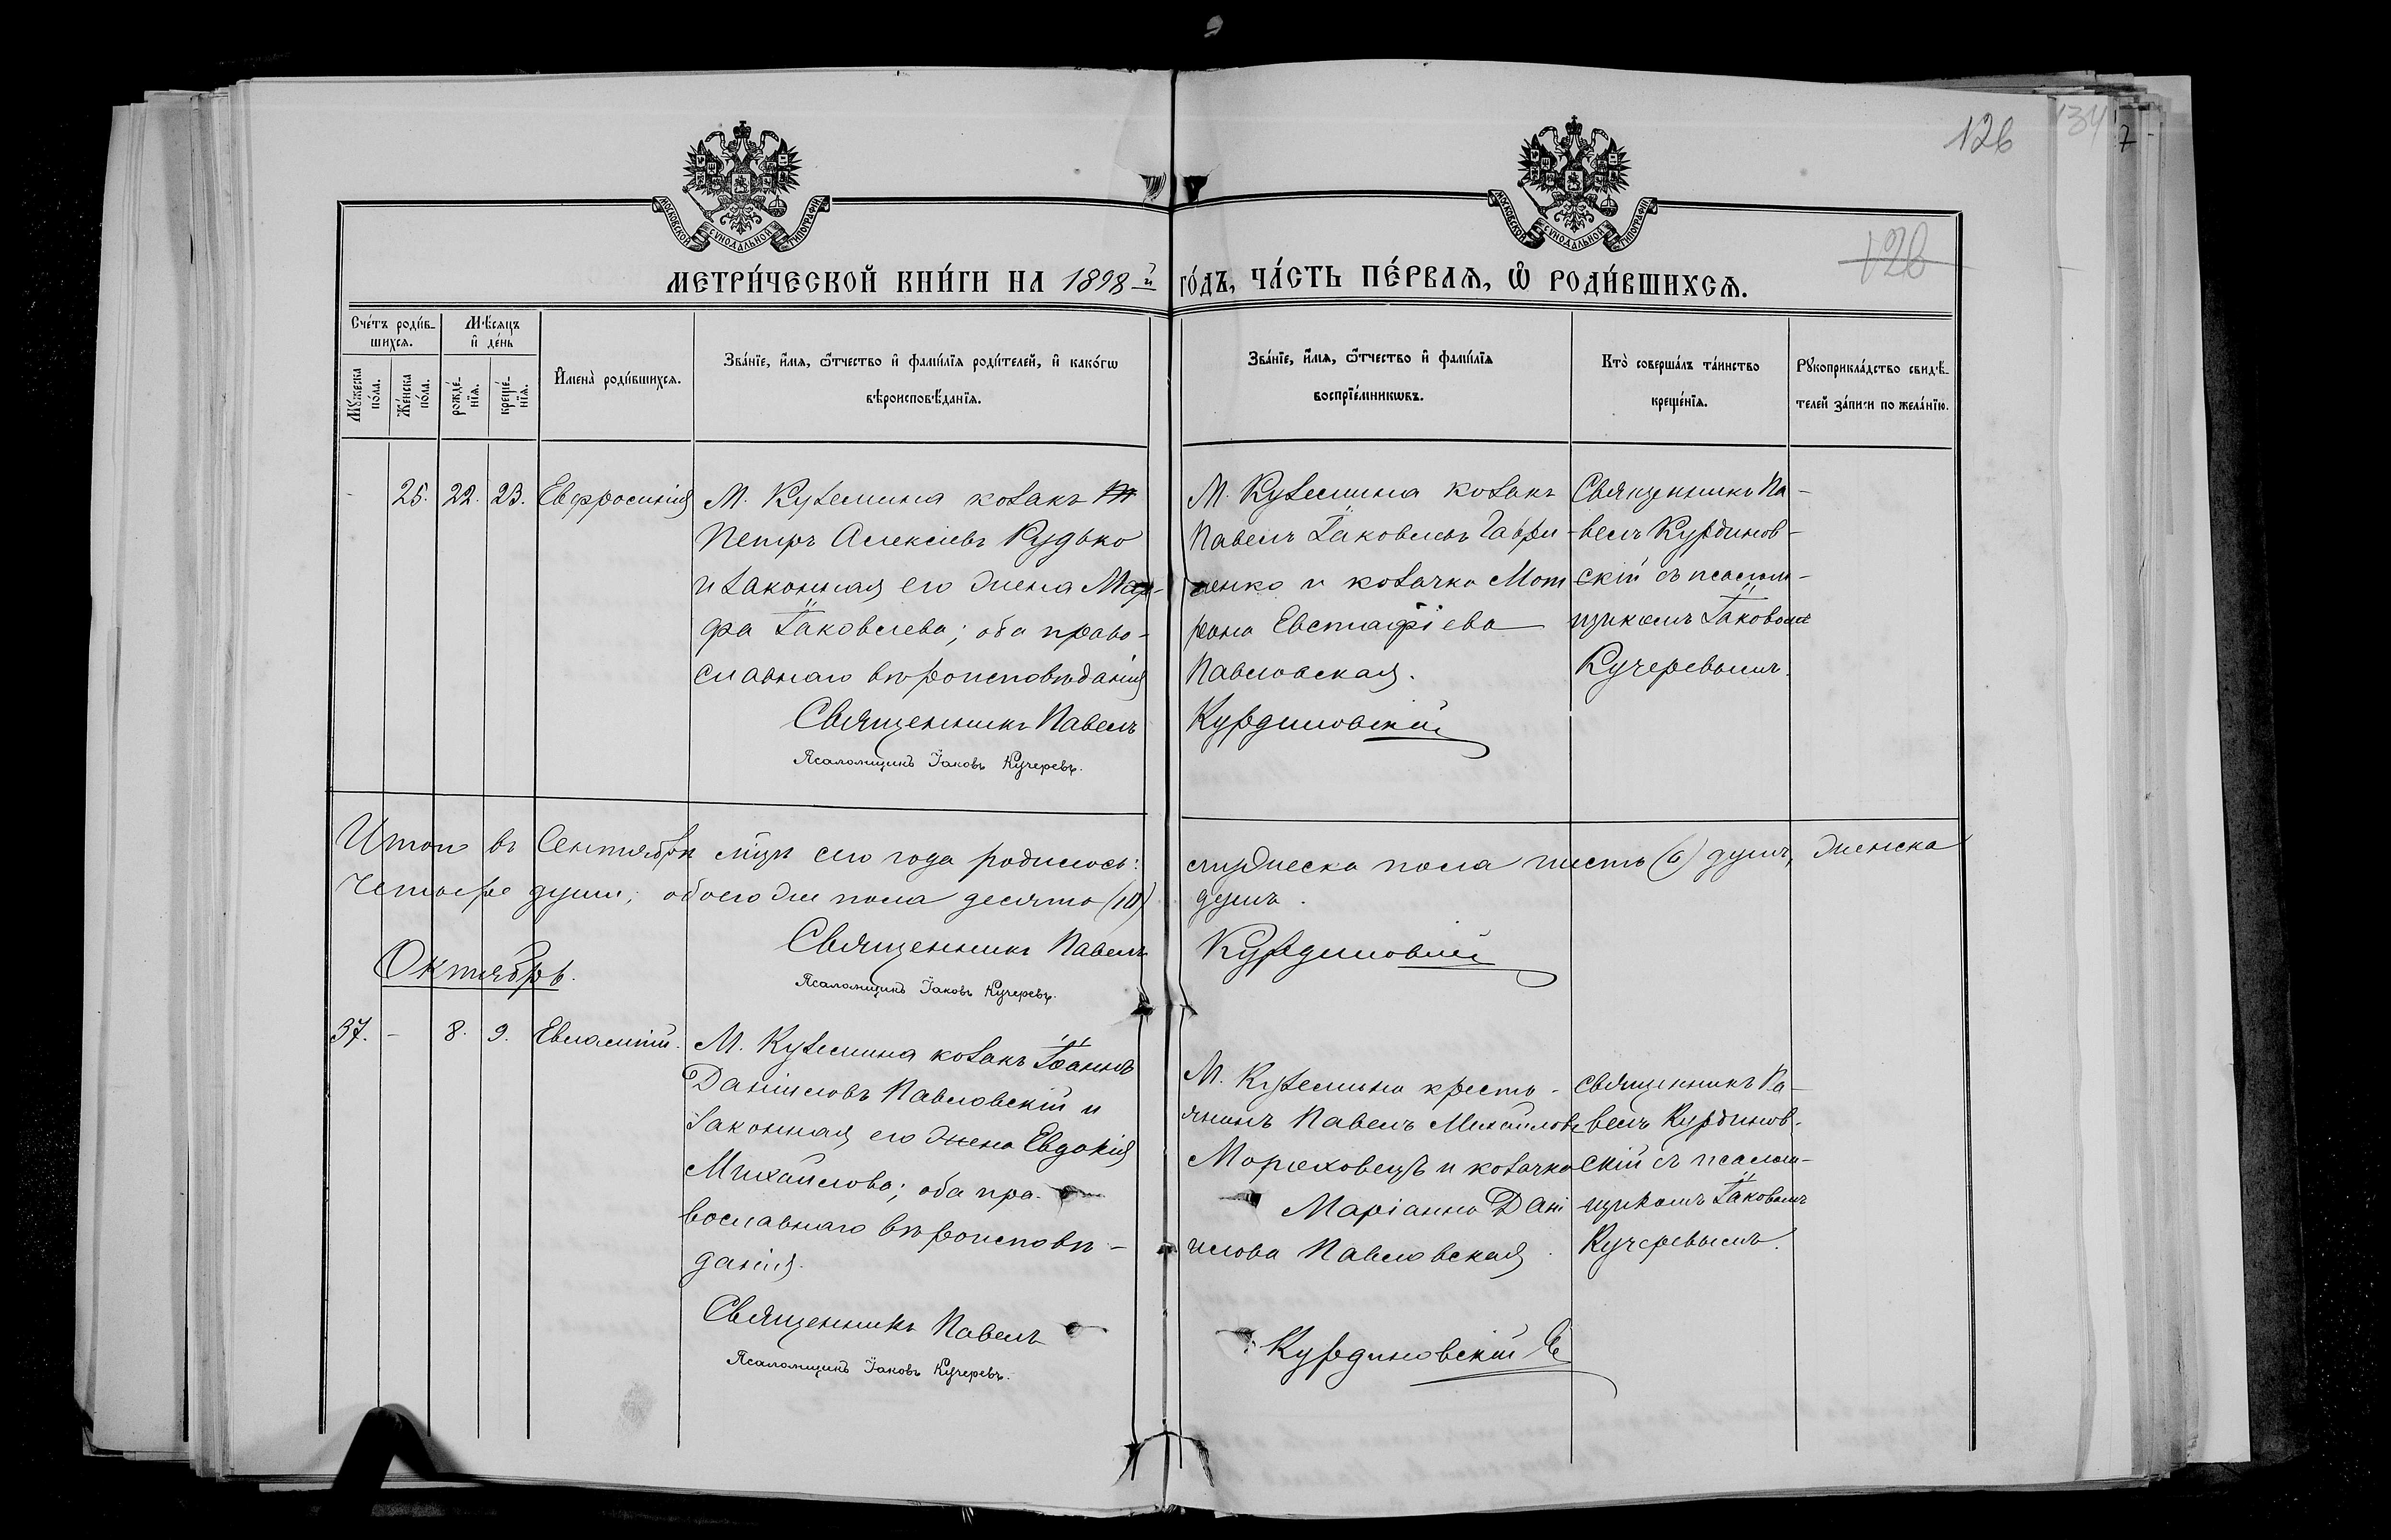 126
134
7
МОСКОВСКОЙ СѴНОДАЛЬНОЙ ТИПОГРАФІИ
МОСКОВСКОЙ СѴНОДАЛЬНОЙ ТИПОГРАФІИ
126
МЕТРИ́ЧЕСКОЙ КНИ́ГИ НА 1898й го́дъ, ЧА́СТЬ ПЕ́РВАЯ, Ѡ҆ РОДИ́ВШИХСЯ.
Сче́тъ роди́в-
шихся.
Му́жеска по́ла.
Же́нска по́ла.
Мѣ́сяцъ
и҆ де́нь
рожде́-
нїя.
креще́-
нїя.
И҆мена̀ роди́вшихся.
Зва́нїе, и҆́мя, ѻ҆́тчество и҆ фами́лїя роди́телей, и҆ како́гѡ
вѣроисповѣ́данїя.
Зва́нїе, и҆́мя, ѻ҆́тчество и҆ фами́лїя
воспрїе́мникѡвъ.
Кто̀ соверша́лъ та́инство
креще́нїя.
Рукоприкла́дство свидѣ́-
телей за́писи по жела́нїю.
- 25. 22. 23. Евфросинія
М. Куземина козакъ
Петръ Алексіевъ Рудько
и законная его жена Мар-
фа Іаковлева; оба право-
славнаго вѣроисповѣданія
Священникъ Павелъ
Псаломщикъ Іаковъ Кучеревъ.
М. Куземина козакъ
Павелъ Іаковлевъ Гаври-
ленко и козачка Мот
рона Евстафіева
Павловская.
Курдиновскій
Священникъ Па-
велъ Курдинов-
скій съ псалом-
щикомъ Іаковомъ
Кучеревымъ.
Итого въ Сентябрѣ мцѣ сего года родилось: мужеска пола шесть (6) душъ, женска
Четыре души; обоего же пола десять (10) душъ.
Священникъ Павелъ Курдиновскій
Псаломщикъ Іаковъ Кучеревъ.
Октябрь.
37. - 8. 9. Евлампій.
М. Куземина козакъ Іоаннъ
Даніиловъ Павловскій и
законная его жена Евдокія
Михайлова; оба пра-
вославнаго вѣроисповѣ-
данія.
Священникъ Павелъ
Псаломщикъ Іаковъ Кучеревъ.
М. Куземина кресть-
янинъ Павелъ Михайловъ
Мореховецъ и козачка
Маріанна Дані
илова Павловская.
Курдиновскій
Священникъ Па-
велъ Курдинов-
скій съ псалом-
щикомъ Іаковомъ
Кучеревымъ.